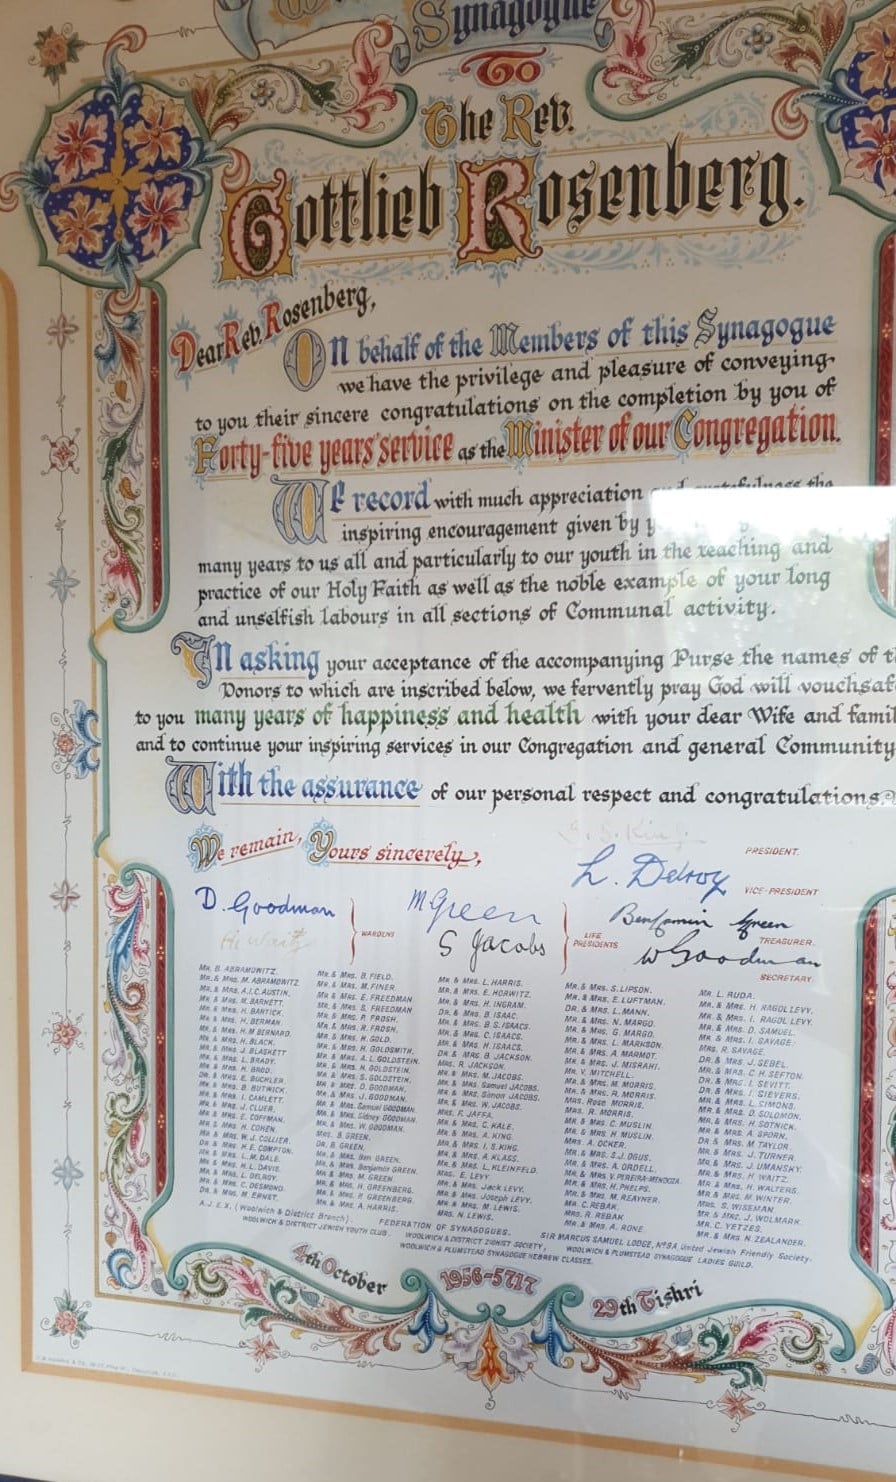 Synagogue
To
The Rev.
Gottlieb Rosenberg.
Dear Rev. Rosenberg,
On behalf of the Members of this Synagogue
we have the privilege and pleasure of conveying
to you their sincere congratulations on the completion by you of
Forty-five years' service as the Minister of our Congregation.
We record with much appreciation and gratefulness the
inspiring encouragement given by
many years to us all and particularly to our youth in the teaching and
practice of our Holy Faith as well as the noble example of your long
and unselfish labours in all sections of Communal activity.
In asking your acceptance of the accompanying Purse the names of
Donors to which are inscribed below, we fervently pray God will
to you many years of happiness and health with your dear Wife and
and to continue your inspiring services in our Congregation and general Community
With the assurance of our personal respect and congratulations.
We remain, Yours sincerely,
S. S. King
PRESIDENT.
L. Delroy
VICE-PRESIDENT
D. Goodman
H. Waitz
WARDENS
M Green
S Jacobs
LIFE PRESIDENTS
Benjamin Green
TREASURER.
W Goodman
SECRETARY.
MR. B. ABRAMOWITZ.
MR. & MRS. M. ABRAMOWITZ.
MR. & MRS. A.I.C. AUSTIN.
MR. & MRS. M. BARNETT.
MR. & MRS. H. BARTICK.
MR. & MRS. H. BERMAN.
MR. & MRS. H.M. BERNARD.
MR. & MRS. H. BLACK.
MR. & MRS. J. BLASKETT
MR. & MRS. L. BRADY.
MR. & MRS. H. BROD.
DR. & MRS. E. BUCKLER
MR. & MRS. B. BUTWICK.
MR. & MRS. I. CAMLETT.
MR. & MRS. J. CLUER.
MR. & MRS. E. COFFMAN.
MR. & MRS. H. COHEN.
MR. & MRS. W. J. COLLIER.
DR. & MRS. H. E. COMPTON.
MR. & MRS. L. M. DALE.
MR. & MRS. H. L. DAVIS.
MR. & MRS. L. DELROY.
MR. & MRS. C. DESMOND.
DR. & MRS. M. ERNST.
MR. & MRS. B. FIELD.
MR. & MRS. M. FINER.
MR. & MRS. E. FREEDMAN
MR. & MRS. S. FREEDMAN
MR. & MRS. P. FROSH.
MR. & MRS. R. FROSH.
MR. & MRS. H. GOLD.
MR. & MRS. H. GOLDSMITH.
MR. & MRS. A. L. GOLDSTEIN.
MR. & MRS. H. GOLDSTEIN.
MR. & MRS. S. GOLDSTEIN.
MR. & MRS. D. GOODMAN.
MR. & MRS. J. GOODMAN.
MR. & MRS. Samuel GOODMAN.
MR. & MRS. Sidney GOODMAN.
MR. & MRS. W. GOODMAN.
MRS. B. GREEN.
DR. B. GREEN.
MR. & MRS. Ben GREEN.
MR. & MRS. Benjamin GREEN.
MR. & MRS. M. GREEN
MR. & MRS. H. GREENBERG.
MR. & MRS. P. GREENBERG.
MR. & MRS. A. HARRIS.
MR. & MRS. L. HARRIS.
MR. & MRS. E. HORWITZ.
MR. & MRS. H. INGRAM.
DR. & MRS. B. ISAAC.
MR. & MRS. B. S. ISAACS.
MR. & MRS. C. ISAACS.
MR. & MRS. H. ISAACS.
DR. & MRS. B. JACKSON.
MRS. R. JACKSON.
MR. & MRS. M. JACOBS.
MR. & MRS. Samuel JACOBS.
MR. & MRS. Simon JACOBS.
MR. & MRS. W. JACOBS.
MRS. F. JAFFA.
MR. & MRS. C. KALE.
MR. & MRS. A. KING.
MR. & MRS. I. S. KING.
MR. & MRS. A. KLASS.
MR. & MRS. L. KLEINFELD.
MRS. E. LEVY
MR. & MRS. Jack LEVY.
MR. & MRS. Joseph LEVY.
MR. & MRS. M. LEWIS.
MRS. N. LEWIS.
MR. & MRS. S. LIPSON.
MR. & MRS. E. LUFTMAN.
DR. & MRS. L. MANN.
MR. & MRS. N. MARGO.
MR. & MRS. G. MARGO.
MR. & MRS. L. MARKSON.
MR. & MRS. A. MARMOT.
MR. & MRS. J. MISRAHI.
MR. V. MITCHELL.
MR. & MRS. M. MORRIS.
MR. & MRS. R. MORRIS.
MRS. Rose MORRIS.
MRS. R. MORRIS.
MR. & MRS. C. MUSLIN.
MR. & MRS. H. MUSLIN.
MRS. A. OCKER.
MR. & MRS. S.J. OGUS.
MR. & MRS. A. ORDELL.
MR. & MRS. V. PEREIRA-MENDOZA.
MR. & MRS. H. PHELPS.
MR. & MRS. M. REAYNER.
MR. C. REBAK.
MRS. R. REBAK
MR. & MRS. A. RONE.
MR. L. RUDA.
MR. & MRS. H. RAGOL LEVY.
MR. & MRS. I. RAGOL LEVY.
MR. & MRS. D. SAMUEL.
MR. & MRS. I. SAVAGE.
MRS. R. SAVAGE.
DR. & MRS. J. SEBEL.
MR. & MRS. C. H. SEFTON.
DR. & MRS. I. SEVITT.
DR. & MRS. I. SIEVERS.
MR. & MRS. L. SIMONS.
MR. & MRS. D. SOLOMON.
MR. & MRS. H. SOTNICK.
MR. & MRS. A. SPORN.
DR. & MRS. M. TAYLOR.
MR. & MRS. J. TURNER.
MR. & MRS. J. UMANSKY.
MR. & MRS. H. WAITZ.
MR. & MRS. H. WALTERS.
MR. & MRS. M. WINTER.
MRS. S. WISEMAN.
MR. & MRS. J. WOLMARK.
MR. C. YETZES.
MR. & MRS. N. ZEALANDER.
A.J.E.X. (Woolwich & District Branch).
FEDERATION OF SYNAGOGUES.
SIR MARCUS SAMUEL LODGE, No 9A, United Jewish Friendly Society.
WOOLWICH & DISTRICT JEWISH YOUTH CLUB.
WOOLWICH & DISTRICT ZIONIST SOCIETY,
WOOLWICH & PLUMSTEAD SYNAGOGUE LADIES GUILD.
WOOLWICH & PLUMSTEAD SYNAGOGUE HEBREW CLASSES.
4th October
1956-5717
29th Tishri